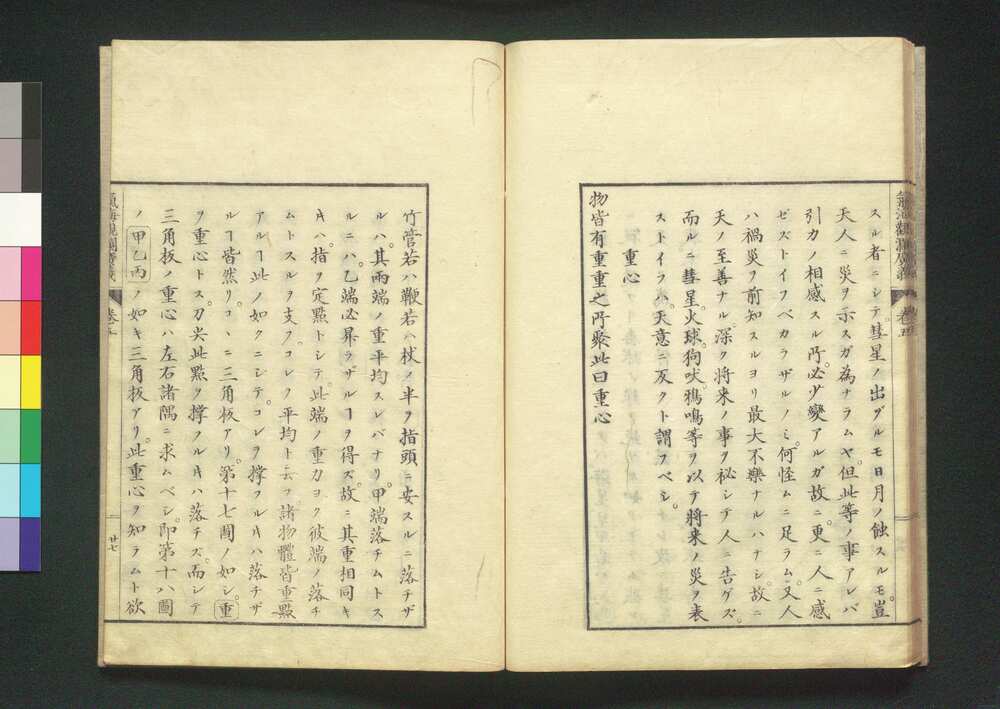 スル者ニシテ彗星ノ出ヅルモ日月ノ蝕スルモ。豈
天人ニ災ヲ示スガ為ナラムヤ。但此等ノ事アレバ
引力ノ相感スル所。必少變アルガ故ニ。更ニ人ニ感
ゼズトイフベカラザルノミ。何怪ムニ足ラム。又人
ハ禍災ヲ前知スルヨリ最大不樂ナルハナシ。故ニ
天ノ至善ナル。深ク将来ノ事ヲ秘シテ人ニ告ゲズ。
而ルニ彗星。火球。狗吠。鴉鳴等ヲ以テ将来ノ災ヲ表
ストイフハ。天意ニ反クト謂フベシ。
重心
物皆有重重之所聚此曰重心
氣海觀瀾廣義
卷五
竹管若ハ鞭若ハ杖ノ半ヲ指頭ニ安スルニ落チザ
ルハ。其両端ノ重平均スレバナリ。甲端落チムトス
ルニハ。乙端必昇ラザルヿヲ得ズ。故ニ其重相同キ
ᅡキハ。指ヲ定點トシテ。此端ノ重力ヨク彼端ノ落チ
ムトスルヲ支フ。コレヲ平均ト云フ。諸物體皆重點
アルヿ此ノ如クニシテ。コレヲ撑フルキハ落チザ
ルヿ皆然リ。コヽニ三角板アリ。第十七圖ノ如シ。重
ヲ重心トス。刀尖此點ヲ撑フルキハ落チズ。而シテ
三角板ノ重心ハ左右諸隅ニ求ムベシ。即第十八圖
ノ甲乙丙ノ如キ三角板アリ。此重心ヲ知ラムト欲
氣海觀瀾廣義
卷五
廿七